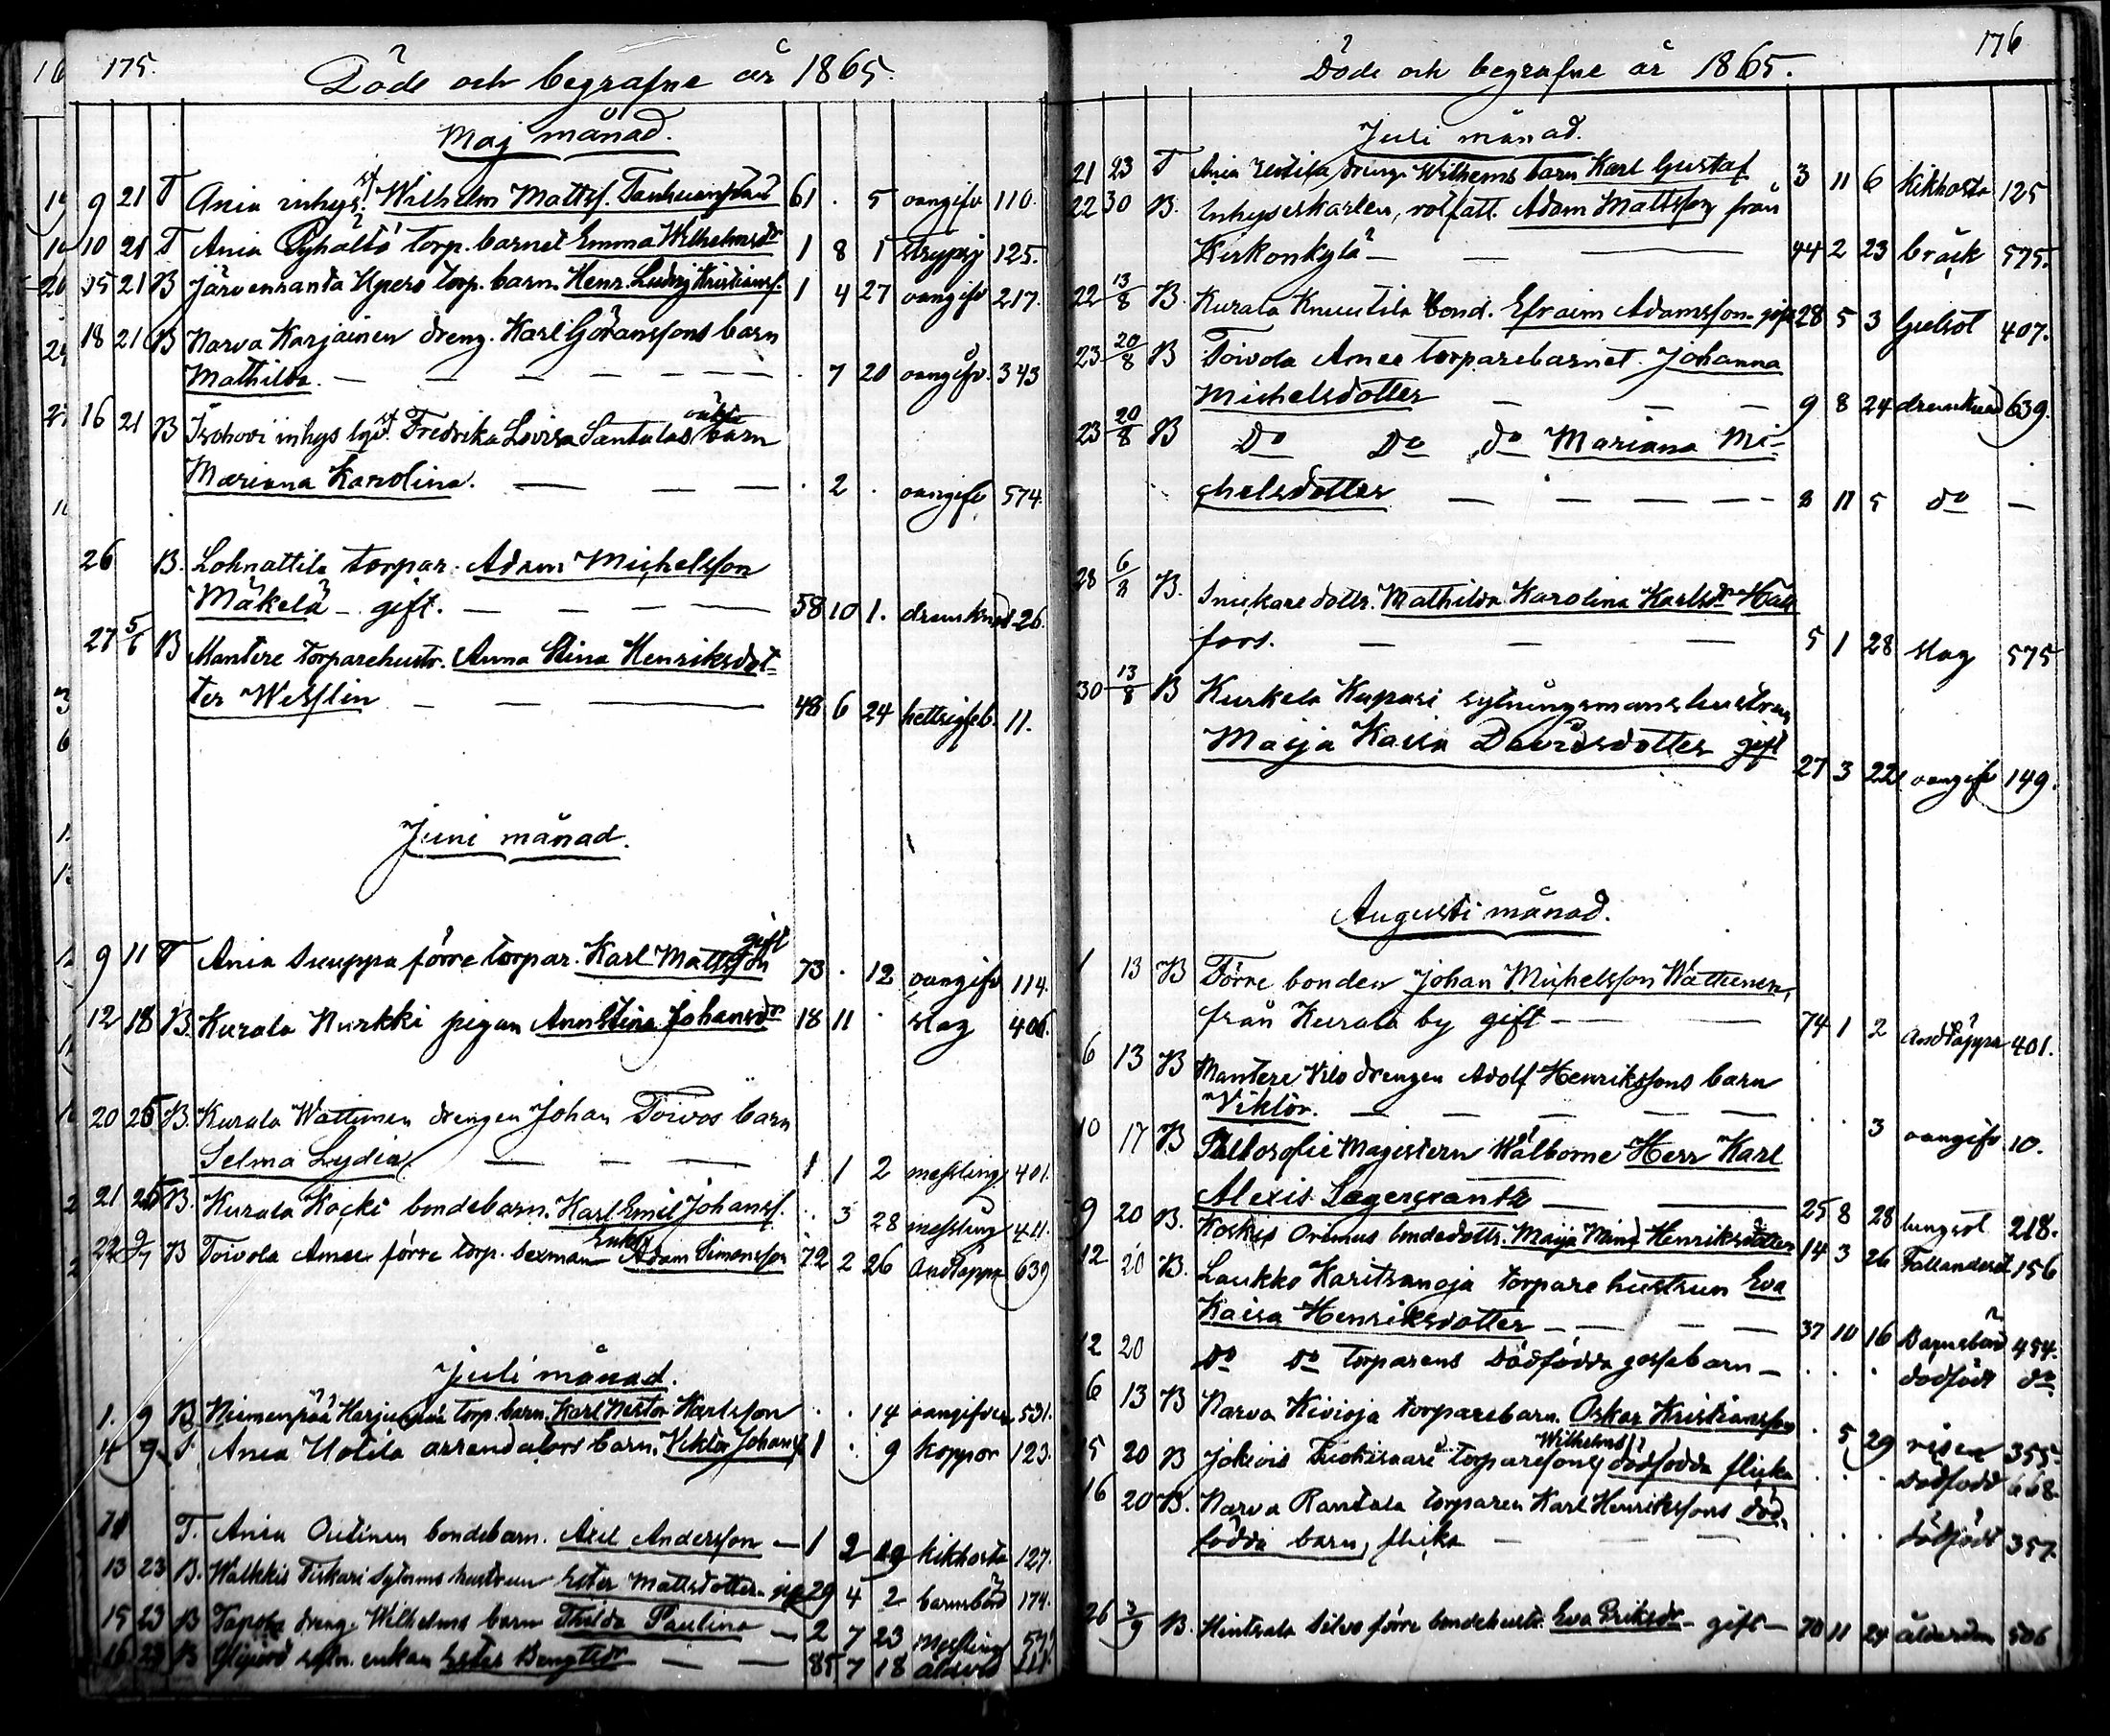 175.
Döde och begrafne år 1865.
Maj månad.
9 21 T Ania inhys. Wilhelm Mattss. 61 . 5 oangifv 110.
10 21 T Ania Pyhältö torp. barnet Emma Wilhelmsdr 1 8 1 strypsj 125.
15 21 B Järvenranta Upero torp. barn. Henr. Ludvig Kristianss. 1 4 27 oangifv 217.
18 21 B Narva Karjainen dreng. Karl Göranssons barn
Mathilda. — — — — . 7 20 oangifv. 343
16 21 B Isohovi inhys Fredrika Lovisa Santalas oäkta barn
Mariana Karolina. — — — . 2 . oangifv 574.
26 B. Lohnattila torpar. Adam Michelsson
Mäkelä – gift. — — — 58 10 1. drunknad 26.
27 5/6 B Mantere torparehustr. Anna Stina Henriksdot-
ter Wesslin — — 48 6 24 hettsigfeb. 11.
Juni månad.
9 11 T Ania Seuppa förre torpar. Karl Mattsson gift 73 . 12 oangifv 114.
12 18 B. Kurala Nurkki pigan Ann Stina Johansdr 18 11 . slag 406.
20 25 B. Kurala Wättinen drengen Johan Toivos barn
Selma Lydia. — — — 1 1 2 messling 401.
21 25 B. Kurala Kocki bondebarn. Karl Emil Johanss. . 3 28 messling 411.
22 2/7 B Toivola Amee förre torp. sexman Enkl. Adam Simonsson 72 2 26 Andtäppa 639
Juli månad.
1. 9 B Niemenpää Harjunpää torp. barn. Karl Nestor Karlsson . . 14 oangifven 531.
4 9 T. Ania Uotila arrendators barn. Viktor Johanss. 1 . 9 koppor 123.
11 T. Ania Outinen bondebarn. Axel Andersson — 1 2 19 kikhosta 127.
13 23 B. Walkkis Tiskari Sytnms hustrun Ester Mattsdotter gift 29 4 2 barnsbörd 174.
15 23 B dreng. Wilhelms barn Thilda Paulina — 2 7 23 Messling
16 23 B sytn. enkan Ester Bengtsdr — — 85 7 18 ålderd
176
Döde och begrafne år 1865.
Juli månad.
21 23 T Ania Uotila dreng. Wilhelms barn Karl Gustaf 3 11 6 kikhosta 125
22 30 B. Inhyseskarlen, rotfatt. Adam Mattsson från
Kirkonkylä — — — 44 2 23 bråck 575.
22 13/8 B. Kurala Knuutila bond. Efraim Adamsson gift 28 5 3 Gulsot 407.
23 20/8 B Toivola Amee torparebarnet Johanna
Michelsdotter — — — 9 8 24 drunknad 639.
23 20/8 B Do Do do Mariana Mi-
chelsdotter — — — — 8 11 5 do —
28 6/8 B. Snickare dottr. Mathilda Karolina Karlsdr Häll
fors. — — — 5 1 28 slag 575
30 13/8 B Kurkela Kupari sytningsmans hustrun
Maija Kaisa Davidsdotter gift 27 3 22 oangifv 149.
Augusti månad.
1 13 B Förre bonden Johan Michelsson Wättinen,
från Kurala by gift — — 74 1 2 Andtäppa 401.
6 13 B Mantere Vilo drengen Adolf Henrikssons barn
Viktor. — — — — . . 3 oangifv 10.
10 17 B Philosofie Magistern Wälborne Herr Karl
Alexis Lagercrantz — — 25 8 28 lungsot 218.
9 20 B. Koskis Orimus bondedottr. Maija Mina Henriksdotter 14 3 26 Fallandesot 156
12 20 B. Laukko Karitsanoja torpare hustrun Eva
Kaisa Henriksdotter — — — 37 10 16 Barnsbörd 454.
12 20 Do Do torparens dödfödda gossebarn — . . . dödfödt do
6 13 B Narva Kivioja torparebarn. Oskar Kristiansson . 5 29 risen 355.
15 20 B Jokiois torpareson Wilhelms dödfödda flicka . . . dödfödd 668.
16 20 B. Narva Rantala torparen Karl Henrikssons död-
födda barn, flicka — — . . . dödfödt 357.
26 3/9 B. Hinsala Silvo förre bondehustr. Eva Eriksdr – gift — 70 11 24 ålderdom 506